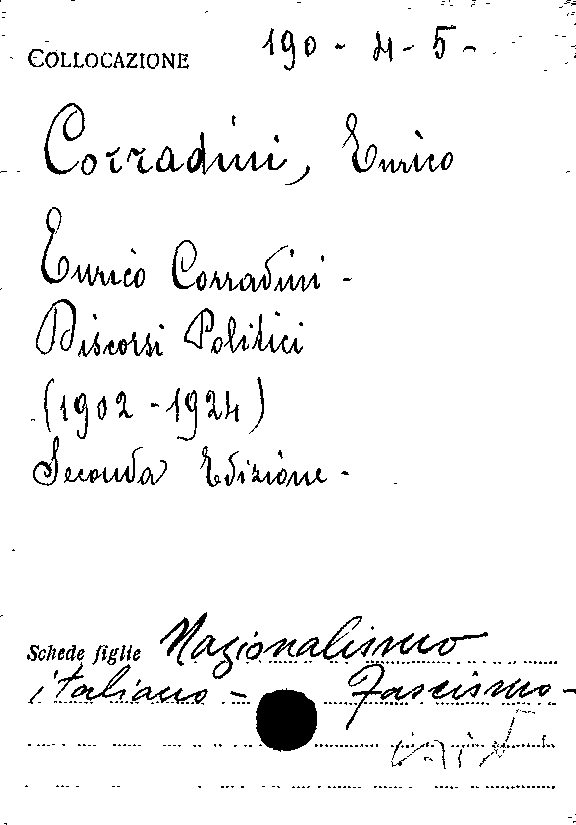 COLLOCAZIONE 190 - 4 - 5 -
Corradini, Enrico
Enrico Corradini -
Discorsi Politici
(1902 - 1924)
Seconda Edizione -
Schede figlie Nazionalismo
italiano - Fascismo -